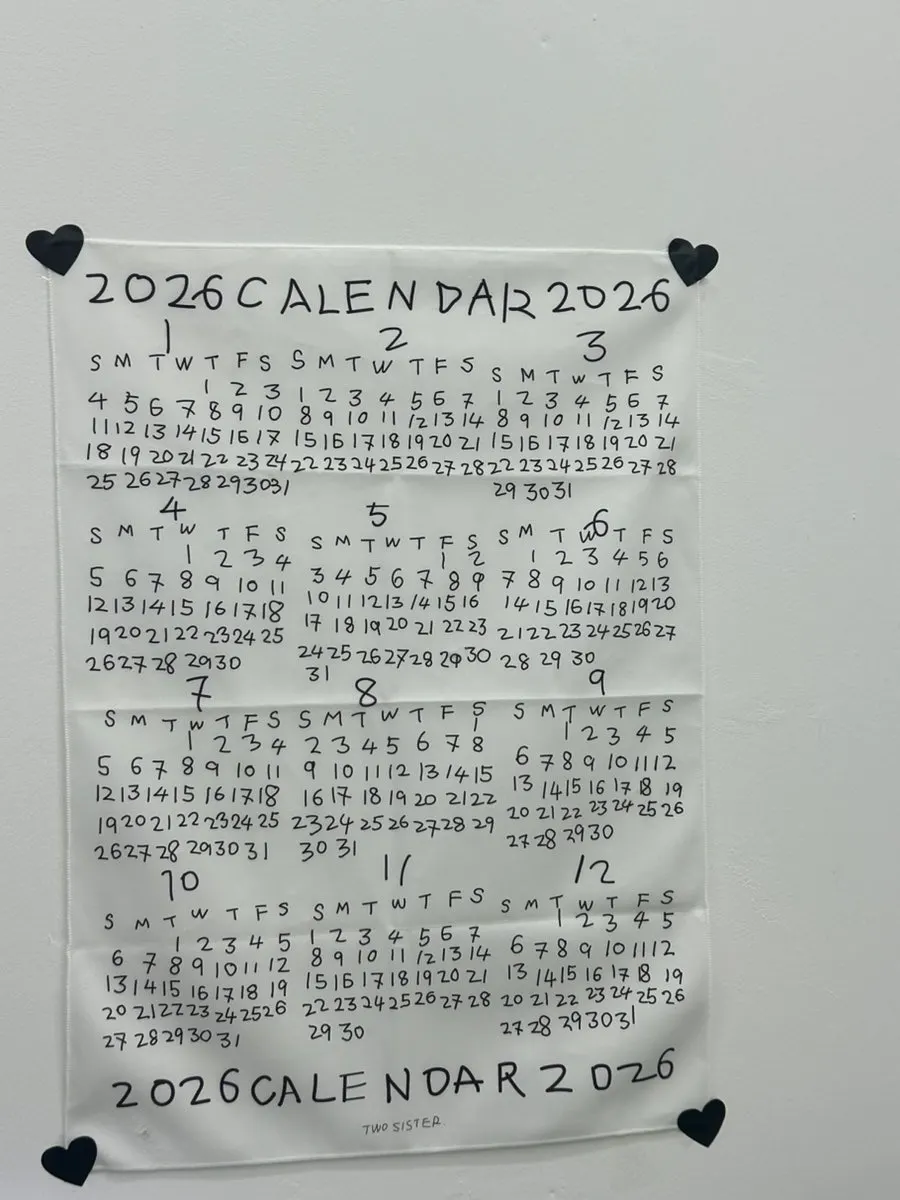 2026 CALENDAR 2026
1
S M T W T F S
1 2 3
4 5 6 7 8 9 10
11 12 13 14 15 16 17
18 19 20 21 22 23 24
25 26 27 28 29 30 31
2
S M T W T F S
1 2 3 4 5 6 7
8 9 10 11 12 13 14
15 16 17 18 19 20 21
22 23 24 25 26 27 28
3
S M T W T F S
1 2 3 4 5 6 7
8 9 10 11 12 13 14
15 16 17 18 19 20 21
22 23 24 25 26 27 28
29 30 31
4
S M T W T F S
1 2 3 4
5 6 7 8 9 10 11
12 13 14 15 16 17 18
19 20 21 22 23 24 25
26 27 28 29 30
5
S M T W T F S
1 2
3 4 5 6 7 8 9
10 11 12 13 14 15 16
17 18 19 20 21 22 23
24 25 26 27 28 29 30
31
6
S M T W T F S
1 2 3 4 5 6
7 8 9 10 11 12 13
14 15 16 17 18 19 20
21 22 23 24 25 26 27
28 29 30
7
S M T W T F S
1 2 3 4
5 6 7 8 9 10 11
12 13 14 15 16 17 18
19 20 21 22 23 24 25
26 27 28 29 30 31
8
S M T W T F S
1
2 3 4 5 6 7 8
9 10 11 12 13 14 15
16 17 18 19 20 21 22
23 24 25 26 27 28 29
30 31
9
S M T W T F S
1 2 3 4 5
6 7 8 9 10 11 12
13 14 15 16 17 18 19
20 21 22 23 24 25 26
27 28 29 30
10
S M T W T F S
1 2 3 4 5
6 7 8 9 10 11 12
13 14 15 16 17 18 19
20 21 22 23 24 25 26
27 28 29 30 31
11
S M T W T F S
1 2 3 4 5 6 7
8 9 10 11 12 13 14
15 16 17 18 19 20 21
22 23 24 25 26 27 28
29 30
12
S M T W T F S
1 2 3 4 5
6 7 8 9 10 11 12
13 14 15 16 17 18 19
20 21 22 23 24 25 26
27 28 29 30 31
2026 CALENDAR 2026
TWO SISTER